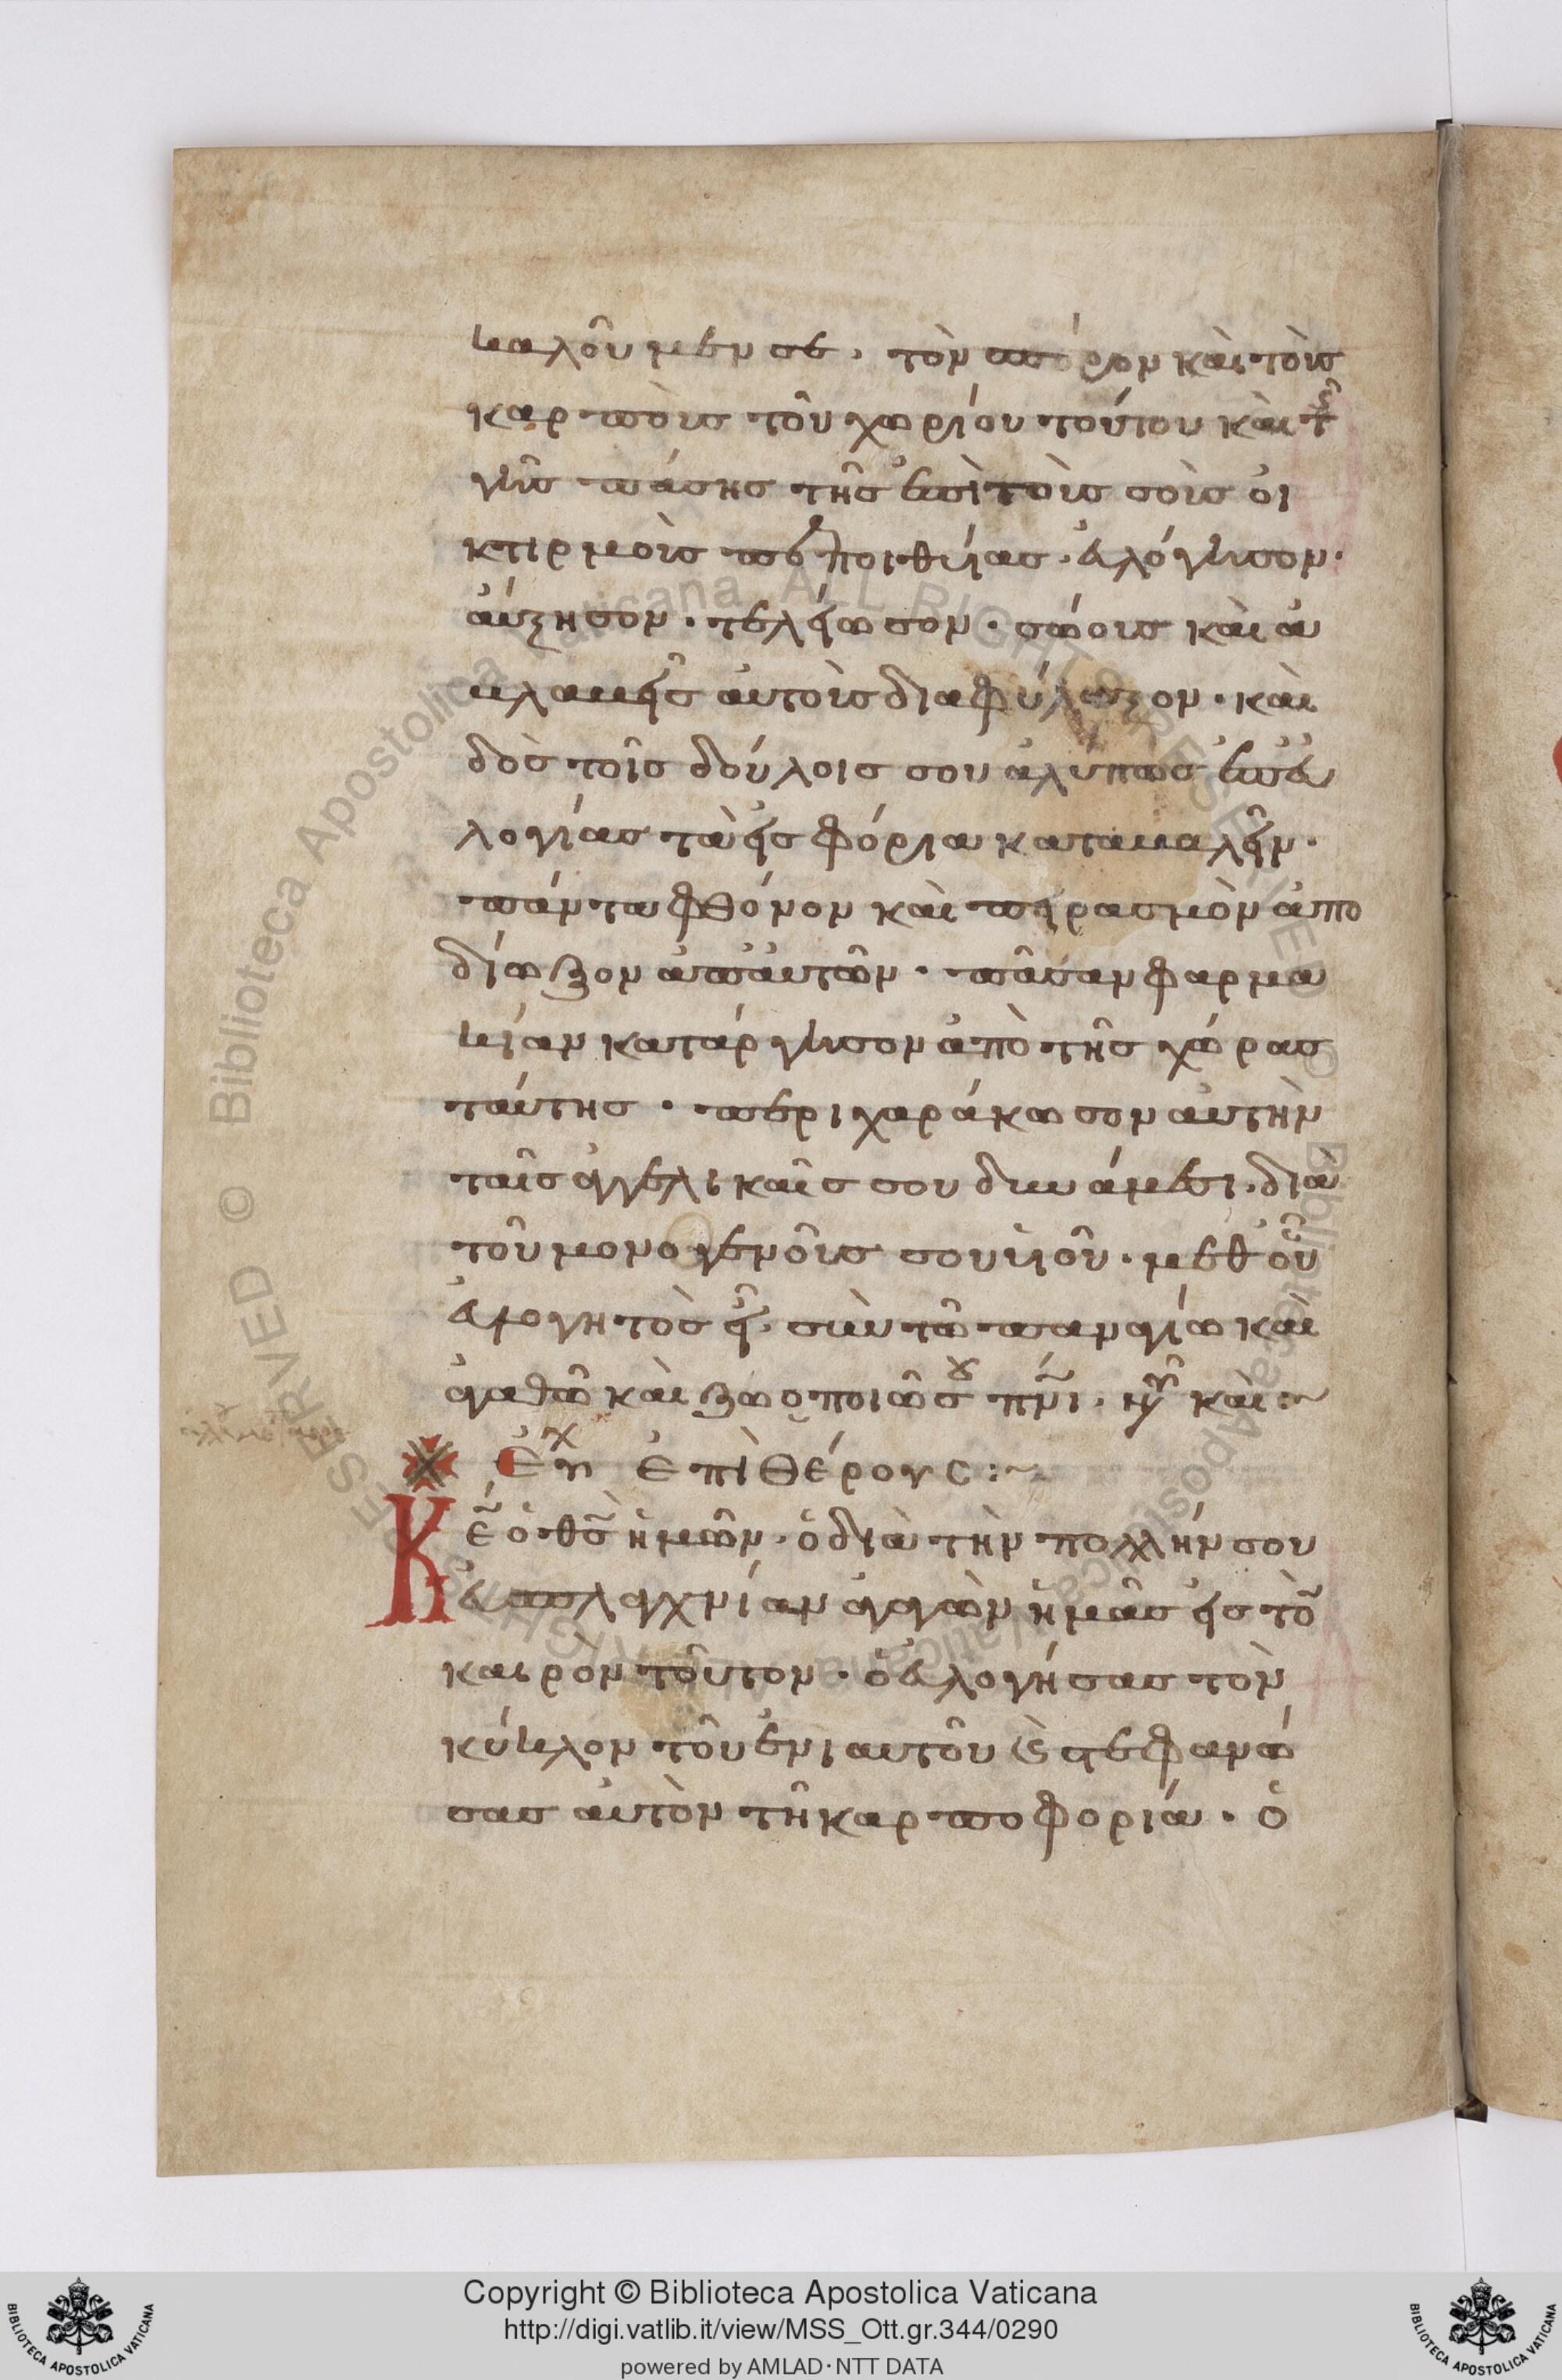 καλοῦμεν σε· τὸν σπόρον καὶ τοὺς
καρποὺς τοῦ χωρίου τούτου καὶ τῆς
γῆς πάσης τῆς ἐπὶ τοῖς σοῖς οἰ
κτιρμοῖς πεποιθυίας· εὐλόγησον·
αὔξησον· τελείωσον· σώους καὶ ἀ
βλαβεῖς αὐτοὺς διαφύλαξον· καὶ
δὸς τοῖς δούλοις σου ἀλύπως ἐπ' εὐ
λογίας τὰ εἰσφόρια καταβαλεῖν·
πάντα φθόνον καὶ πειρασμὸν ἀπο
δίωξον ἀπ' αὐτῶν· πᾶσαν φαρμα
κίαν κατάργησον ἀπὸ τῆς χώρας
ταύτης· περιχαράκωσον αὐτὴν
ταῖς ἀγγελικαῖς σου δυνάμεσι· διὰ
τοῦ μονογενοῦς σου υἱοῦ· μεθ' οὗ
εὐλογητὸς εἶ· σὺν τῶ παναγίω καὶ
ἀγαθῶ καὶ ζωοποιῶ σου πνι· νῦν καὶ :~
Εὐχ ἐπὶ θέρους :~
Κε ὁ θς ἡμῶν· ὁ διὰ τὴν πολλήν σου
εὐσπλαγχνίαν ἀγαγὼν ἡμᾶς εἰς τὸ
καιρὸν τοῦτον· ὁ εὐλογήσας τὸν
κύκλον τοῦ ἐνιαυτοῦ ϗ στεφανώ
σας αὐτὸν τῆ καρποφορία· ὁ
Copyright © Biblioteca Apostolica Vaticana
http://digi.vatlib.it/view/MSS_Ott.gr.344/0290
powered by AMLAD·NTT DATA